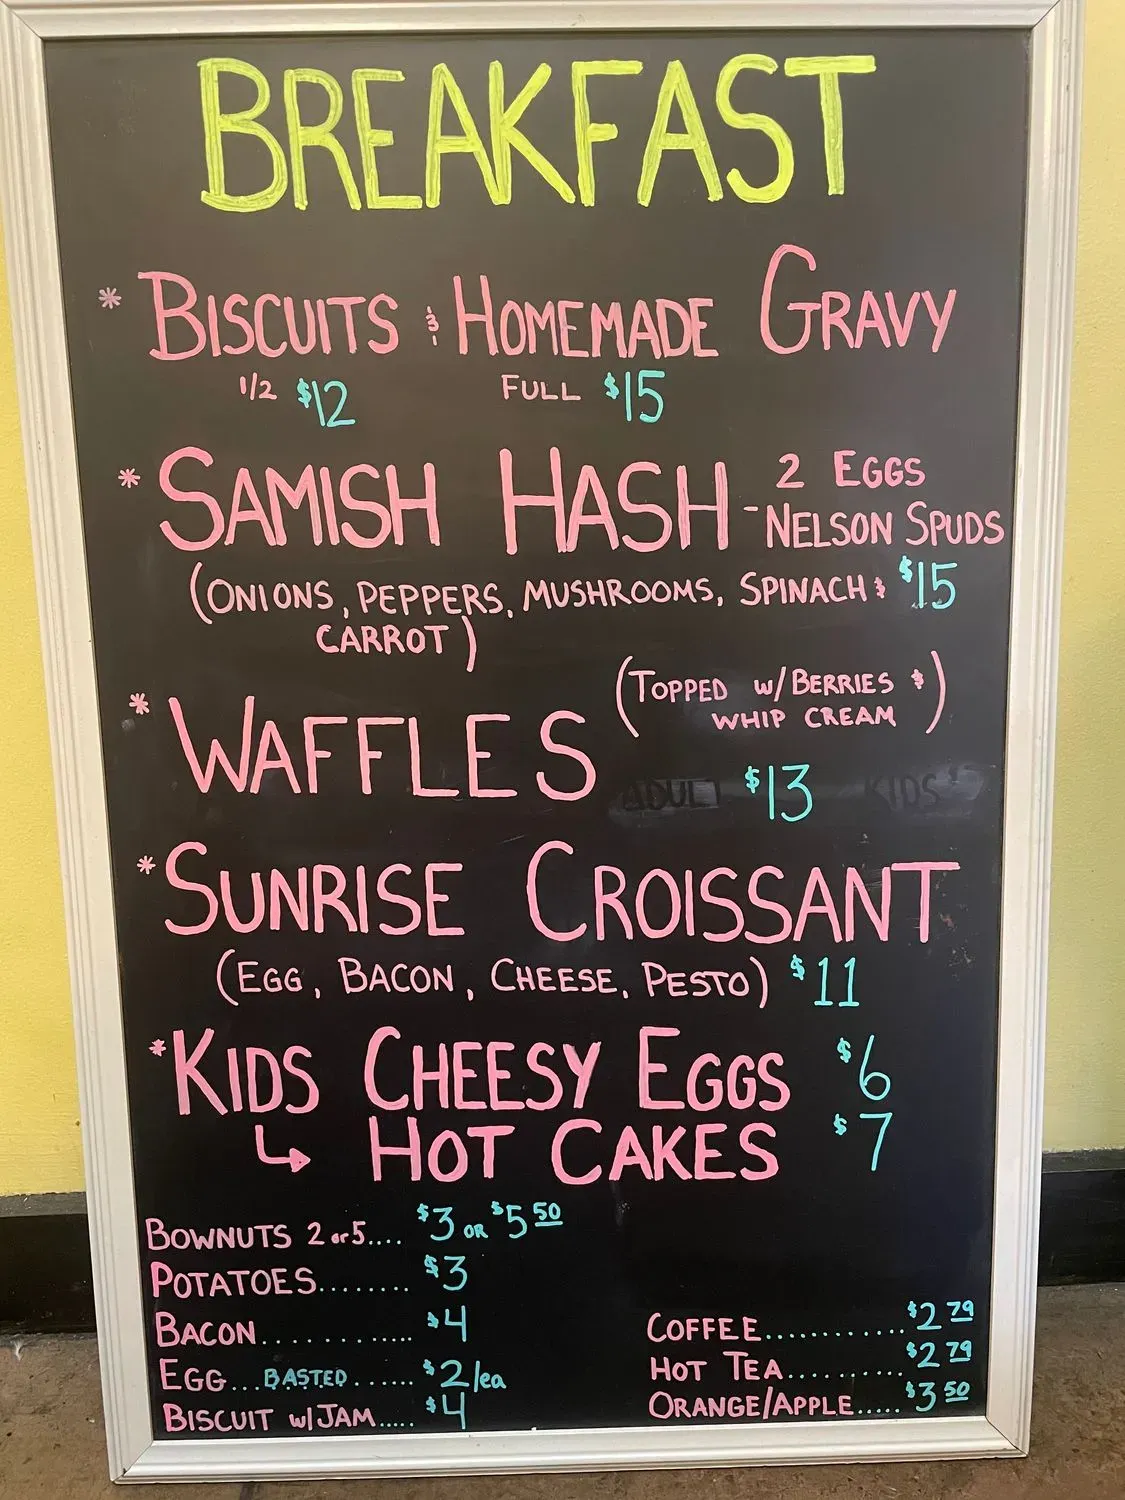 BREAKFAST
* BISCUITS & HOMEMADE GRAVY
1/2 $12 FULL $15
* SAMISH HASH - 2 EGGS
NELSON SPUDS
(ONIONS, PEPPERS, MUSHROOMS, SPINACH & $15
CARROT)
(TOPPED W/ BERRIES &)
WHIP CREAM
* WAFFLES
ADULT $13 KIDS
* SUNRISE CROISSANT
(EGG, BACON, CHEESE, PESTO) $11
* KIDS CHEESY EGGS $6
↳ HOT CAKES $7
BOWNUTS 2 or 5.... $3 OR $5 50
POTATOES........ $3
BACON............. $4
EGG...BASTED...... $2/ea
BISCUIT W/JAM..... $4
COFFEE............ $2 79
HOT TEA.......... $2 79
ORANGE/APPLE..... $3 50